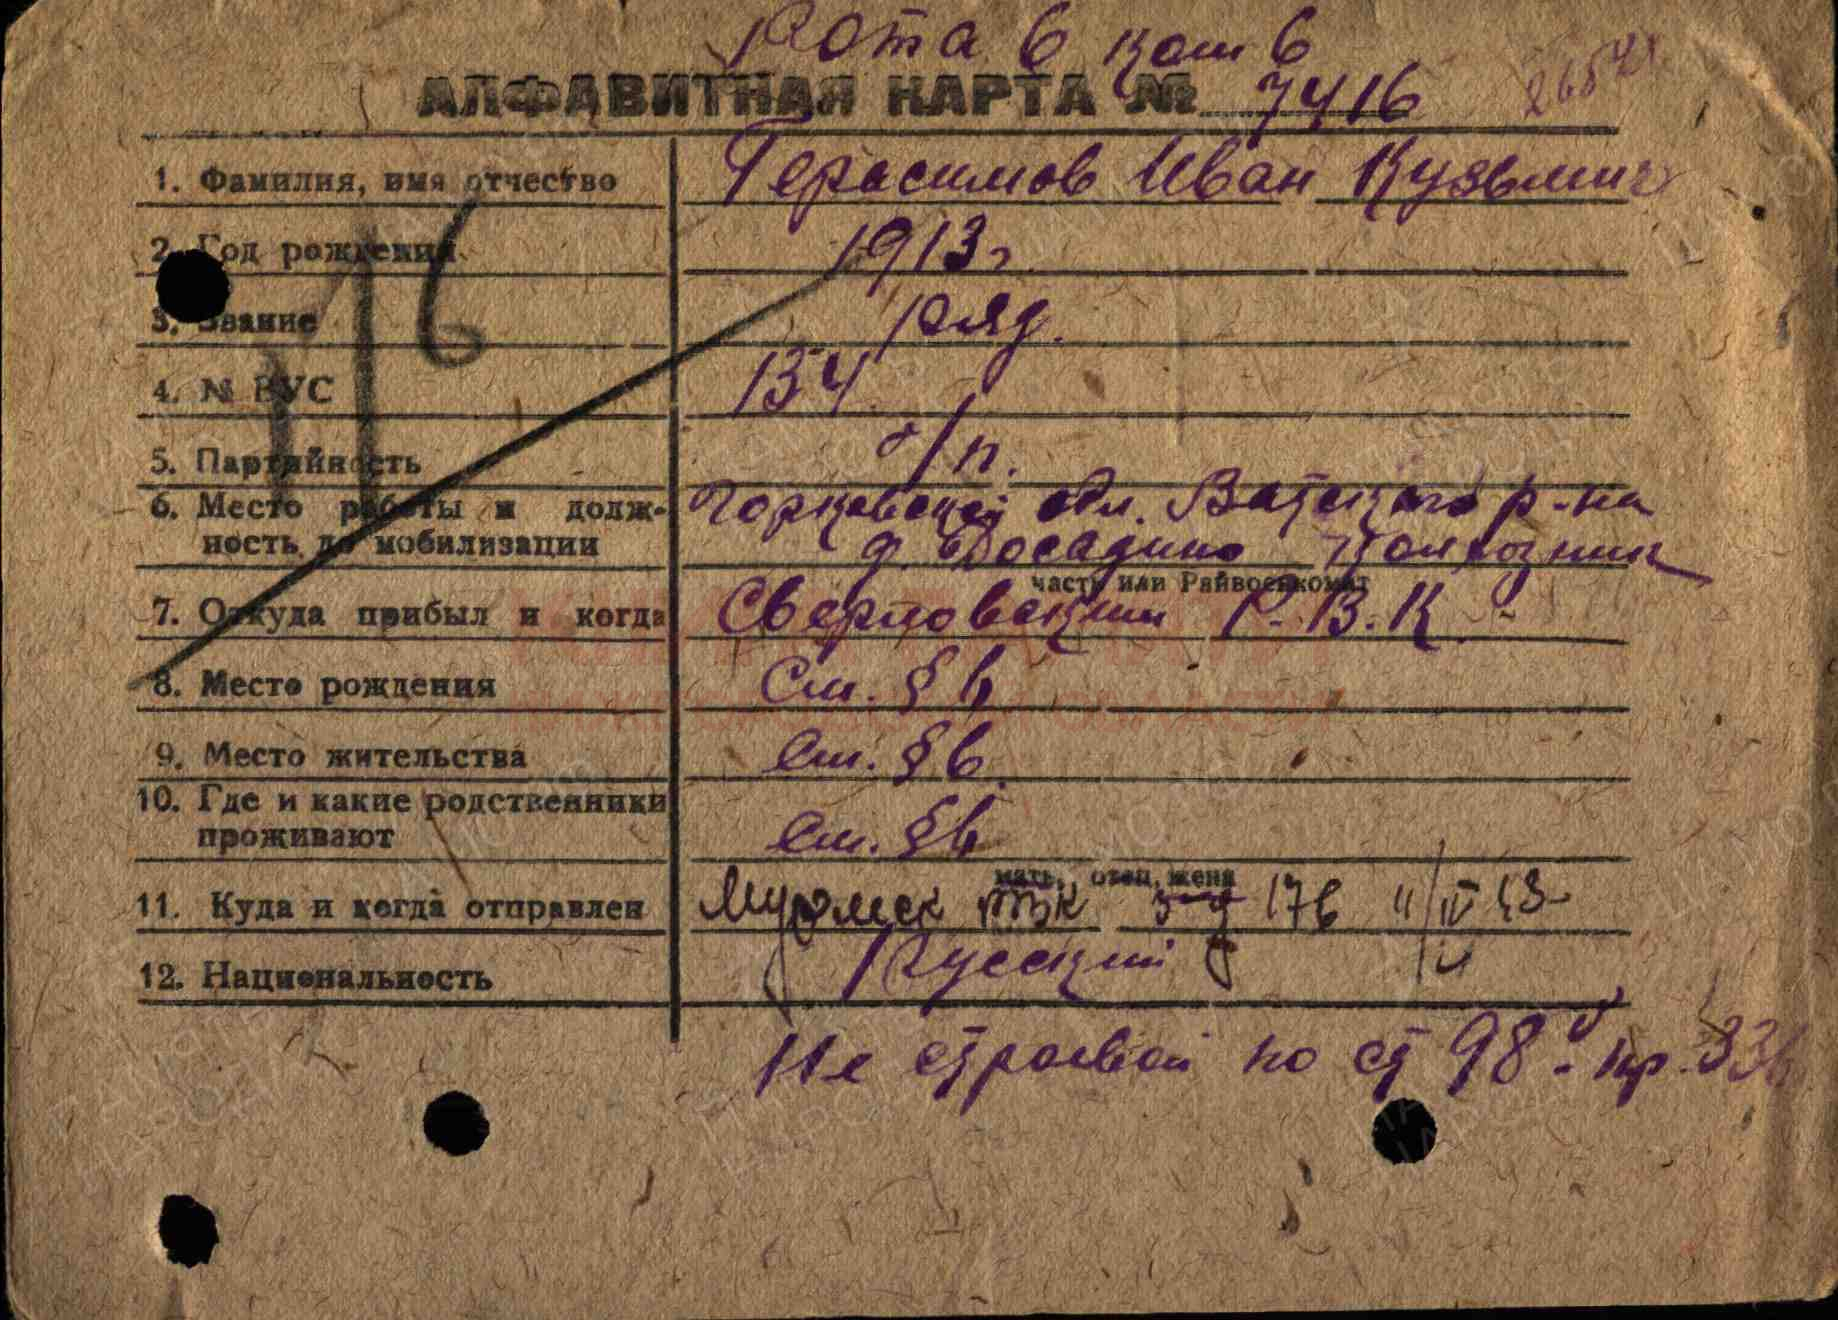 Рота 6 ком 6
АЛФАВИТНАЯ КАРТА № 7416
1. Фамилия, имя отчество Герасимов Иван Кузьмич
2. Год рождения 1913 г
3. Звание ряд.
4. № ВУС 134
5. Партийность б/п.
6. Место работы и долж- Горьковской обл. Вачского р-на
ность до мобилизации д. Колхозник
часть или Райвоенкомат
7. Откуда прибыл и когда Свердловский Р.В.К.
8. Место рождения См. § 6
9. Место жительства см. § 6.
10. Где и какие родственники
проживают см. § 6
мать, отец, жена
11. Куда и когда отправлен 176 11/IV 43
12. Национальность Русский
Не строевой по ст 98 пр. 336
116